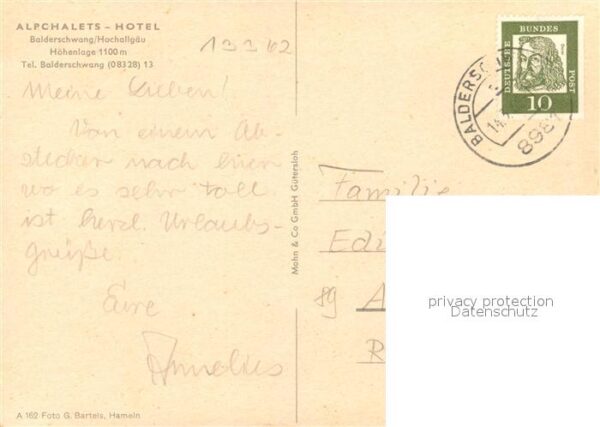 ALPCHALETS - HOTEL
Balderschwang/Hochallgäu
Höhenlage 1100 m
Tel. Balderschwang (08328) 13
13 3 62
Meine Lieben!
Von einem Ab-
stecher nach hier
wo es sehr toll
ist herzl. Urlaubs-
grüße.
Eure
Mohn & Co GmbH Gütersloh
DEUTSCHE BUNDES POST
10
BALDERSC
898
Familie
Edi
89 A
R
privacy protection
Datenschutz
A 162 Foto G. Bartels, Hameln